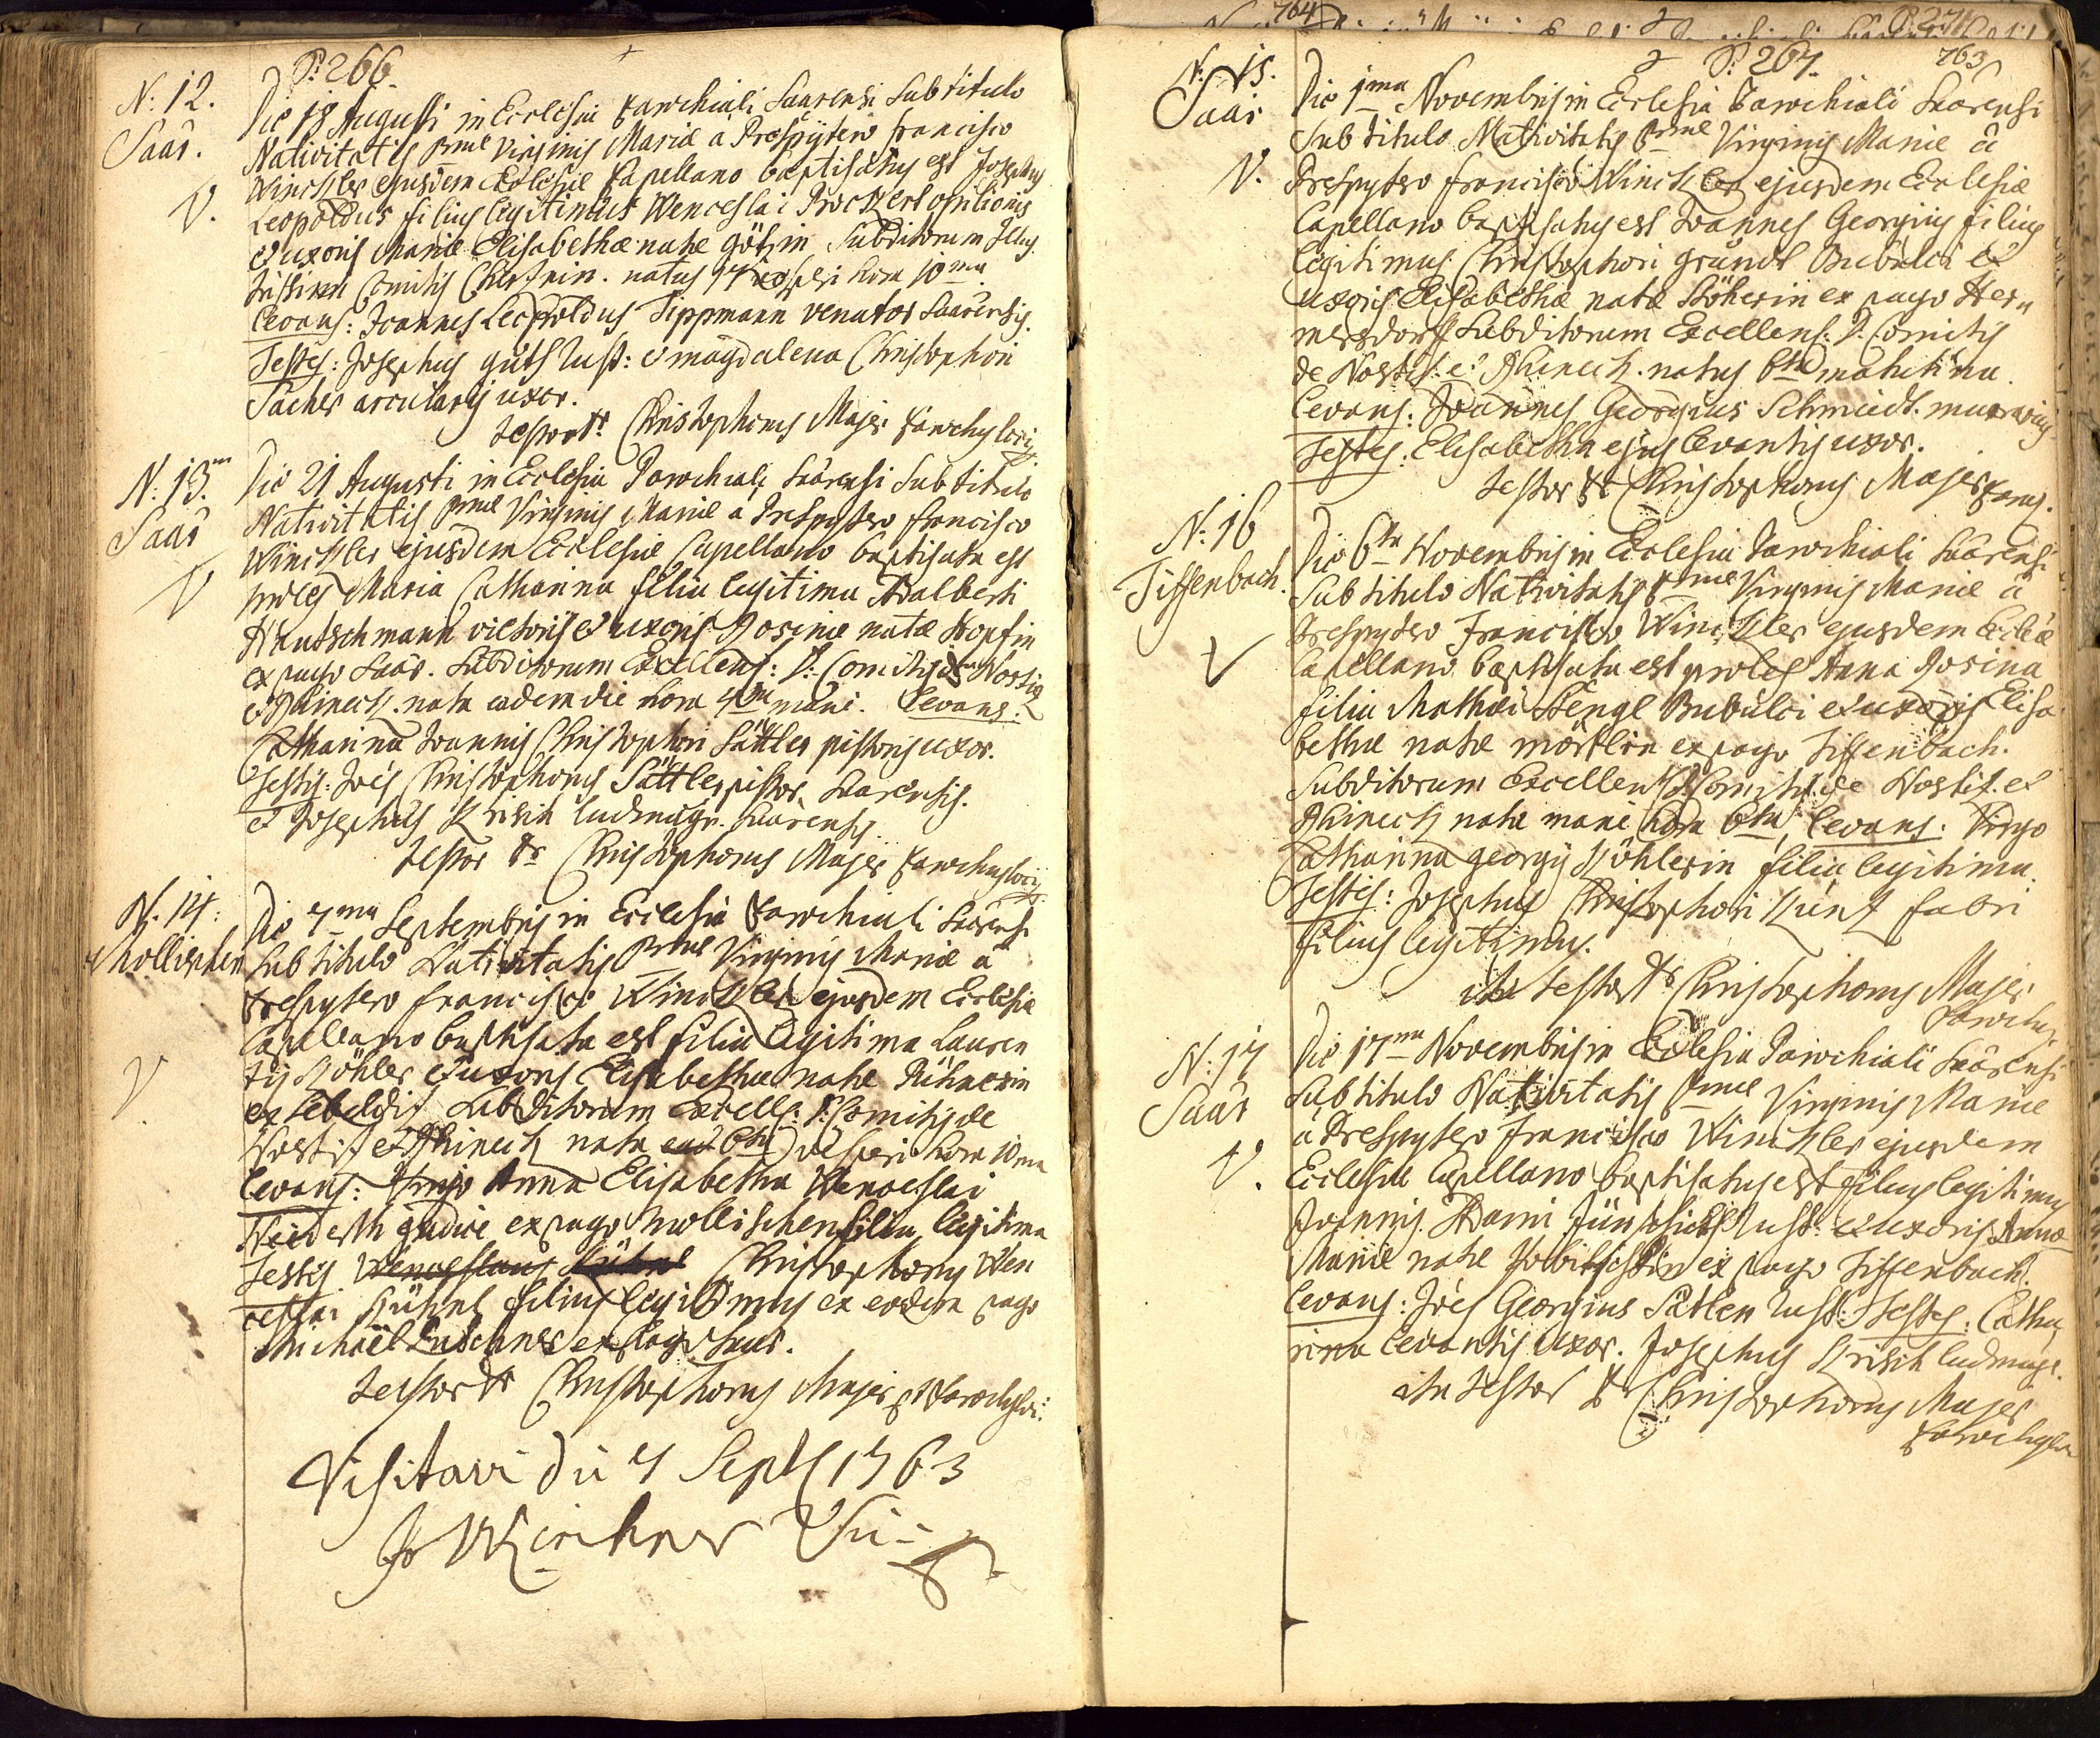 P: 266.
N: 12.
Saar.
V.
Die 18 Augusti in Ecclesia Parochiali Saarensi Sub titulo
Nativitatis Bmae Virginis Mariae a Presbytero Francisco
Winckler ejusdem Ecclesiae Capellano baptisatus est Josephus
Leopoldus filius legitimus Wenceslai opilionis
et uxoris Mariae Elisabethae natae Götzin Subditorum Illus
trissimi Comitis natus 17 vesperi hora 10ma.
Levans: Joannes Leopoldus Tippmann venator Saarensis.
Testes: Josephus Güth Inst: et Magdalena Christophori
Sacher arcularij uxor.
Testor Pr Christophorus Majer Parochus loci
N: 13.
Saar
V
Die 21 Augusti in Ecclesia Parochiali Saarensi Sub titulo
Nativitatis Bmae Virginis Mariae a Presbytero Francisco
Winckler ejusdem Ecclesiae Capellano baptisata est
proles Maria Catharina filia legitima Adalberti
Hautschmann vietoris et uxoris Rosinae natae Hopfin
ex pago Saar. Subditorum Excellens: D: Comitis de Nostiz
et Rhineck. nata eadem die hora mane. Levans:
Catharina Joannis Christophori Sättler pistoris uxor.
Testes: Joes Christophorus Sättler pistor Saarensis.
et Josephus Krisch ludimagr. Saarensis.
Testor Pr Christophorus Majer Parochus loci
N. 14:
Mollischen
V
Die 7ma Septembris in Ecclesia Parochiali Saarensi
Sub titulo Nativitatis Bmae Virginis Mariae a
Presbytero Francisco Winckler ejusdem Ecclesiae
Capellano baptisata est filia legitima Lauren
tij Köhler et uxoris Elisabethae natae
ex Subditorum Excells: D: Comitis de
Nostiz et Rhineck nata 6ta vesperi hora 10ma
Levans: Virgo Anna Elisabetha Wenceslai
judice ex pago Mollischen filia legitima
Testes Wenceslaus Kühnel Christophorus Wen
ceslai Kühnel filius legitimus ex eodem pago
Michael ex pago Saar.
Testor Pr Christophorus Majer Parochus loci.
Visitavi die 7 Septb 1763
Kirchner
764
P: 271
P: 267.
763
N: 15.
Saar
V.
Die 1ma Novembris in Ecclesia Parochiali Saarensi
Sub titulo Nativitatis Bmae Virginis Mariae a
Presbytero Francisco Winckler ejusdem Ecclesiae
Capellano baptisatus est Joannes Georgius filius
legitimus Christophori Gründl Bubulci et
uxoris Elisabethae natae Köhlerin ex pago Her
mersdorff Subditorum Excellens: D. Comitis
de Nostiz: et Rhineck. natus 6ta matutina.
Levans: Joannes Georgius Schmiedt. murarius
Testes: Elisabetha ejus levantis uxor.
Testor Pr Christophorus Majer Paroch.
N: 16
Tiffenbach.
V
Die 6ta Novembris in Ecclesia Parochiali Saarensi
Sub titulo Nativitatis Bmae Virginis Mariae a
Presbytero Francisco Winckler ejusdem Eccliae
Capellano baptisata est proles Anna Rosina
filia Mathaei Stengl Bubulci et uxoris Elisa
bethae natae ex pago Tiffenbach.
Subditorum Excellent: D: Comitis de Nostiz. et
Rhineck nata mane hora 6ta; Levans: Virgo
Catharina Georgij Köhlerin filia legitima.
Testes: Josephus Christophori Küntz fabri
filius legitimus.
ita testor Pr Christophorus Majer
Parochus
N: 17
Saar
V.
Die 17ma Novembris in Ecclesia Parochiali Saarensi
Sub titulo Nativitatis Bmae Virginis Mariae
a Presbytero Francisco Winckler ejusdem
Ecclesiae Capellano baptisatus est filius legitimus
Joannis Adami Inst: et uxoris Annae
Mariae natae ex pago Tiffenbach.
Levans: Joes Georgius Sättler Inst: Testes: Catha
rina levantis uxor. Josephus Krisch ludimagr.
ita testor Pr Christophorus Majer
Parochus loci